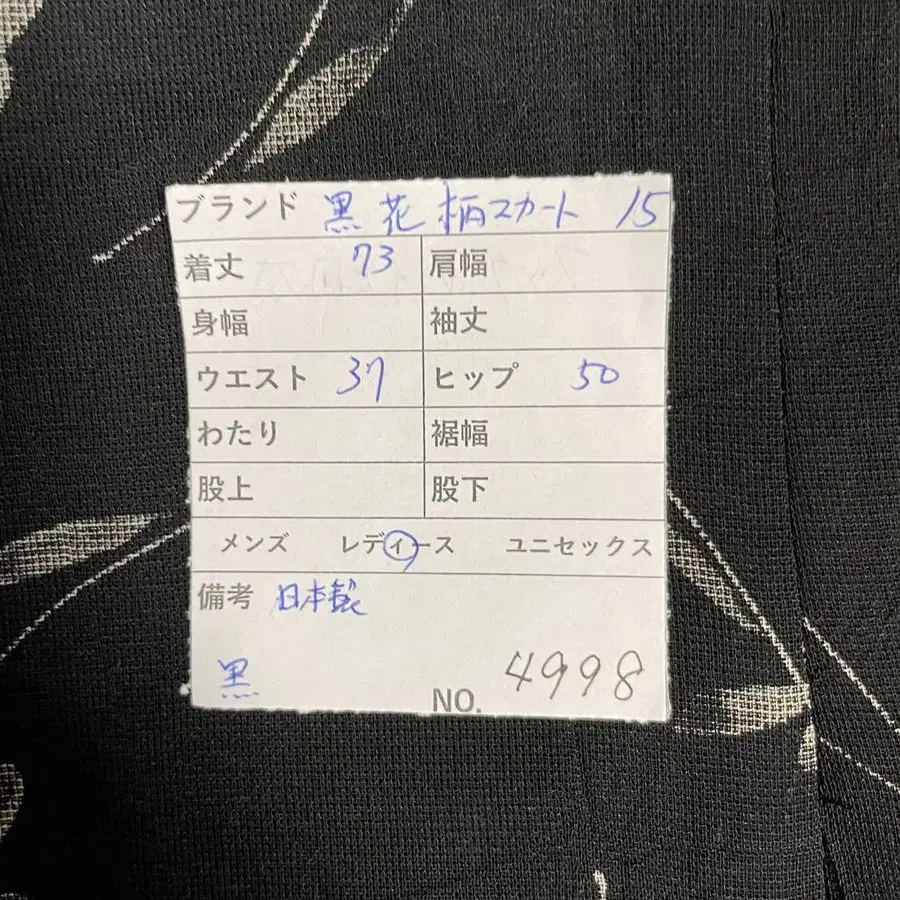 ブランド 黒花柄スカート 15
着丈 73 肩幅
身幅 袖丈
ウエスト 37 ヒップ 50
わたり 裾幅
股上 股下
メンズ レディース ユニセックス
備考 日本製
黒
NO. 4998